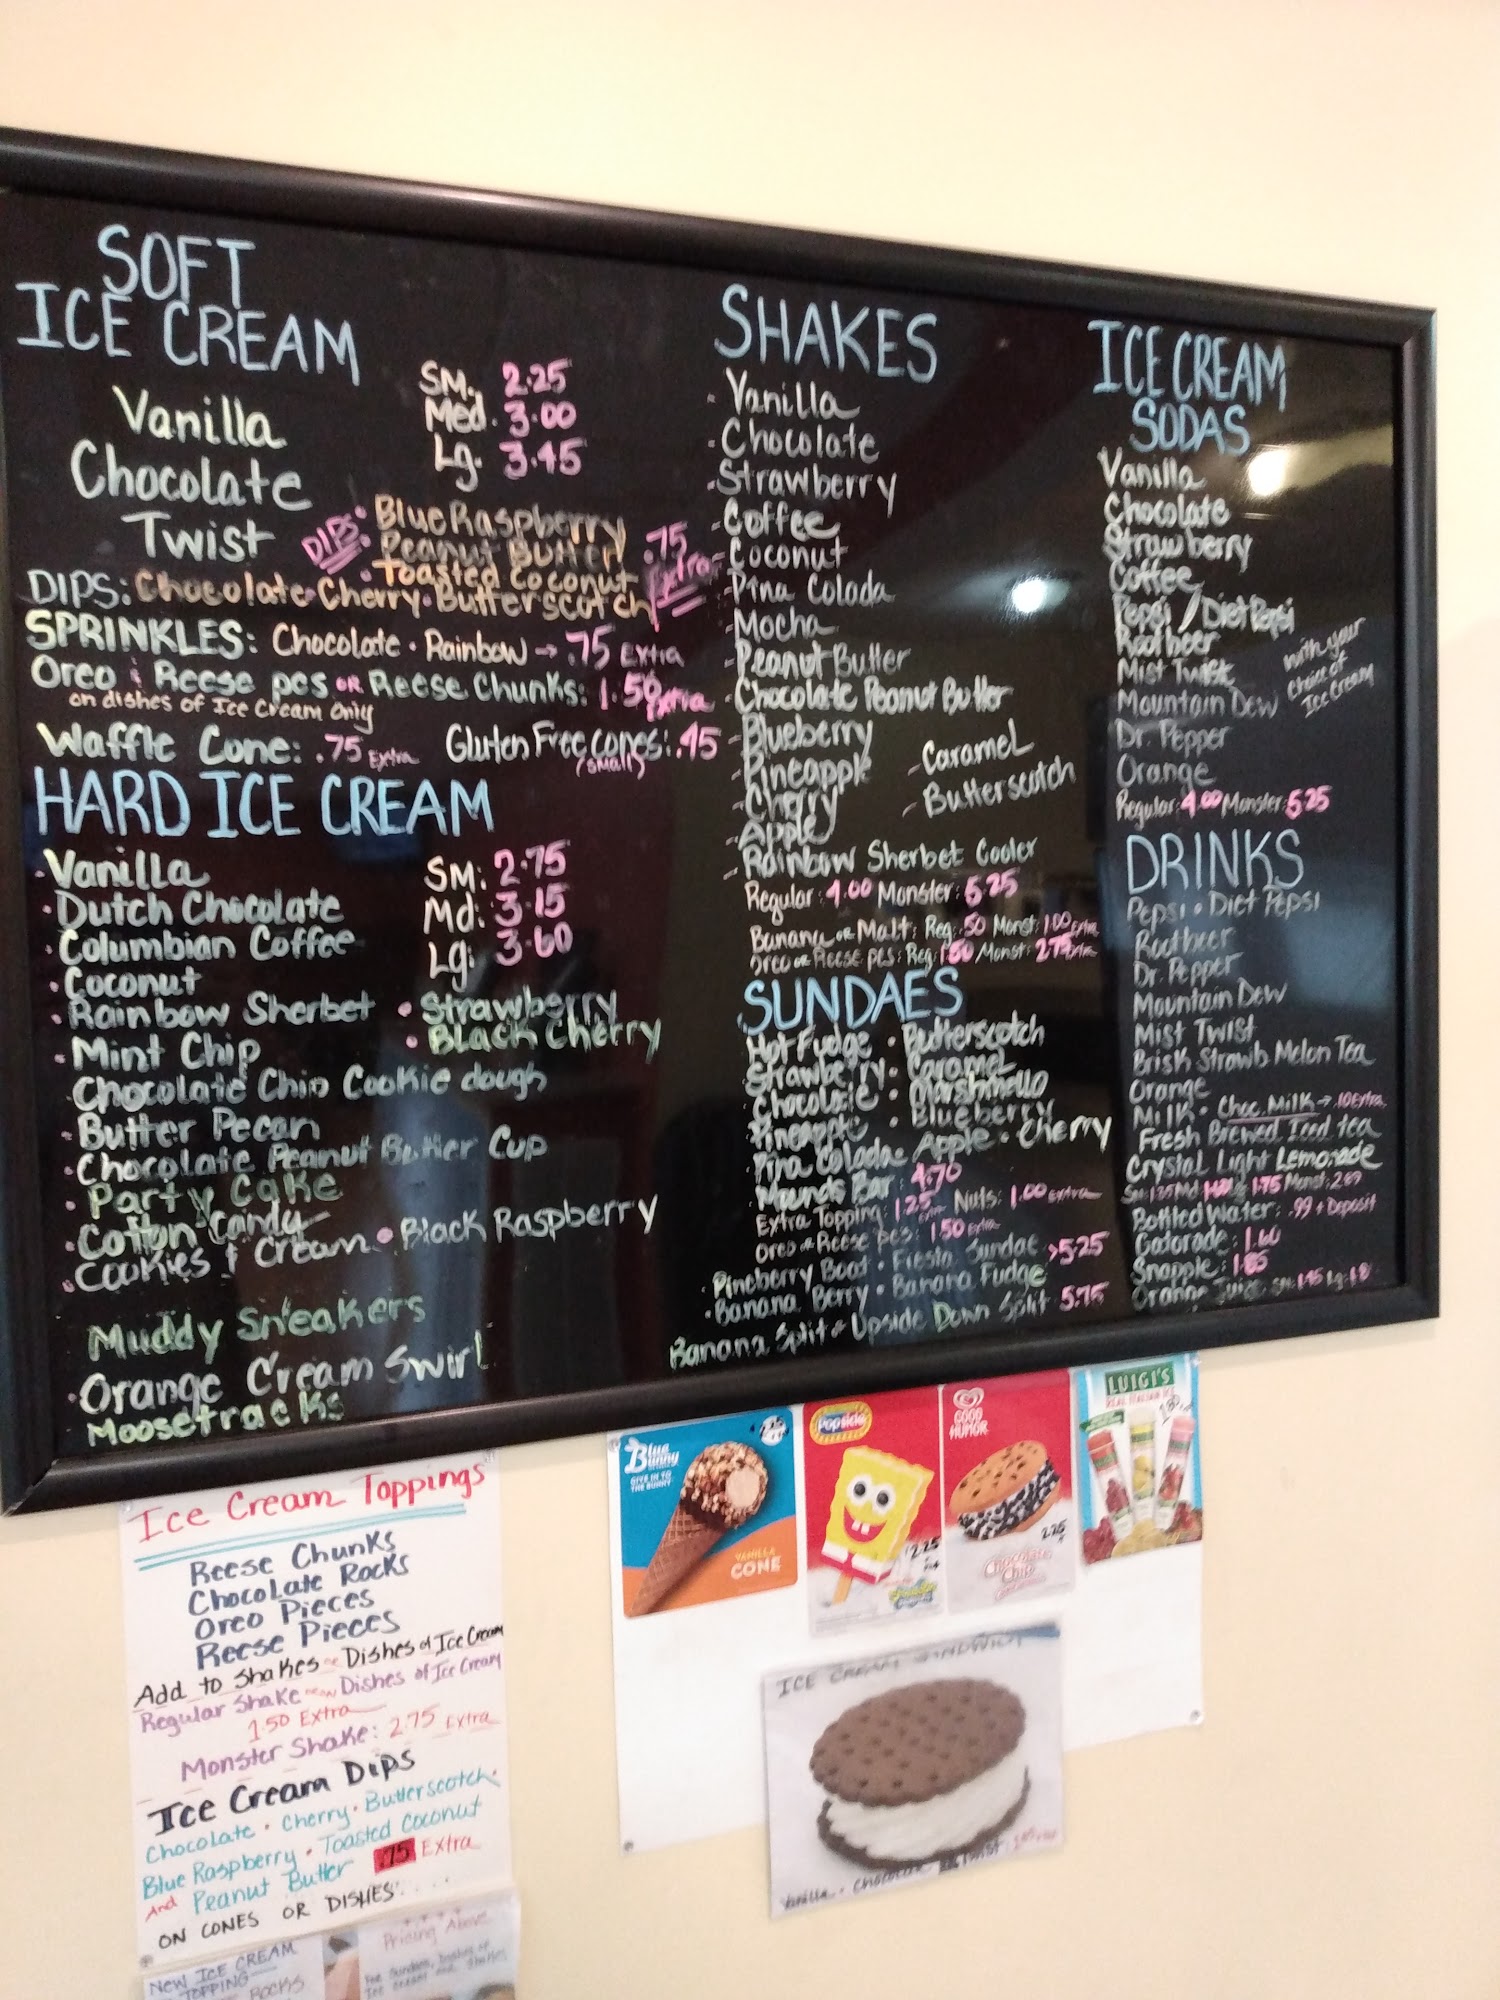 SOFT
ICE CREAM
Vanilla
Chocolate
Twist
SM. 2.25
Med. 3.00
Lg. 3.45
DIPS: Blue Raspberry
Peanut Butter
Toasted Coconut
.75 Extra
DIPS: Chocolate · Cherry · Butterscotch
SPRINKLES: Chocolate · Rainbow → .75 Extra
Oreo & Reese pcs OR Reese Chunks: 1.50 Extra
on dishes of Ice Cream Only
Waffle Cone: .75 Extra Gluten Free cones: .45
(small)
HARD ICE CREAM
· Vanilla
· Dutch Chocolate
· Columbian Coffee
· Coconut
· Rainbow Sherbet
· Mint Chip
Chocolate Chip Cookie dough
· Butter Pecan
· Chocolate Peanut Butter Cup
· Party Cake
· Cotton Candy
· Cookies & Cream · Black Raspberry
Muddy Sneakers
· Orange Cream Swirl
Moosetracks
SM: 2.75
Md: 3.15
Lg: 3.60
· Strawberry
· Black Cherry
SHAKES
- Vanilla
- Chocolate
- Strawberry
- Coffee
- Coconut
- Pina Colada
- Mocha
- Peanut Butter
- Chocolate Peanut Butter
- Blueberry
- Pineapple
- Cherry
- Apple
- Rainbow Sherbet Cooler
- Caramel
- Butterscotch
Regular: 4.00 Monster: 5.25
Banana or Malt: Reg .50 Monst: 1.00 Extra
Oreo or Reese pcs: Reg 1.50 Monst: 2.75 Extra
SUNDAES
Hot Fudge · Butterscotch
Strawberry · Caramel
Chocolate · Marshmello
Pineapple · Blueberry
Pina Colada · Apple · Cherry
Mounds Bar : 4.70
Extra Topping: 1.25 Extra Nuts: 1.00 extra
Oreo or Reese pcs: 1.50 Extra
· Pineberry Boat · Fiesta Sundae >5.25
· Banana Berry · Banana Fudge
Banana Split & Upside Down Split 5.75
ICE CREAM
SODAS
Vanilla
Chocolate
Strawberry
Coffee
Pepsi / Diet Pepsi
Rootbeer
Mist Twist
Mountain Dew
Dr. Pepper
Orange
with your
choice of
Ice Cream
Regular: 4.00 Monster: 5.25
DRINKS
Pepsi · Diet Pepsi
Rootbeer
Dr. Pepper
Mountain Dew
Mist Twist
Brisk Strawb Melon Tea
Orange
Milk · Choc. Milk → .10 Extra
Fresh Brewed Iced tea
Crystal Light Lemonade
Bottled Water: .99 + Deposit
Gatorade: 1.60
Snapple: 1.85
Orange Juice
Ice Cream Toppings
Reese Chunks
Chocolate Rocks
Oreo Pieces
Reese Pieces
Add to shakes or Dishes of Ice Cream
Regular Shake Dishes of Ice Cream
1.50 Extra
Monster Shake: 2.75 Extra
Ice Cream Dips
Chocolate · Cherry · Butterscotch ·
Blue Raspberry · Toasted Coconut
And Peanut Butter .75 Extra
ON CONES OR DISHES....
NEW ICE CREAM
TOPPING
ROCKS
Pricing Above
For Sundaes, Dishes of
Ice cream and Shakes
Blue
Bunny
GIVE IN TO
THE BUNNY
VANILLA
CONE
Popsicle
2.25
GOOD
HUMOR
2.25
Chocolate
Chip
LUIGI'S
REAL ITALIAN ICE
ICE CREAM SANDWICH
Vanilla · Chocolate Twist